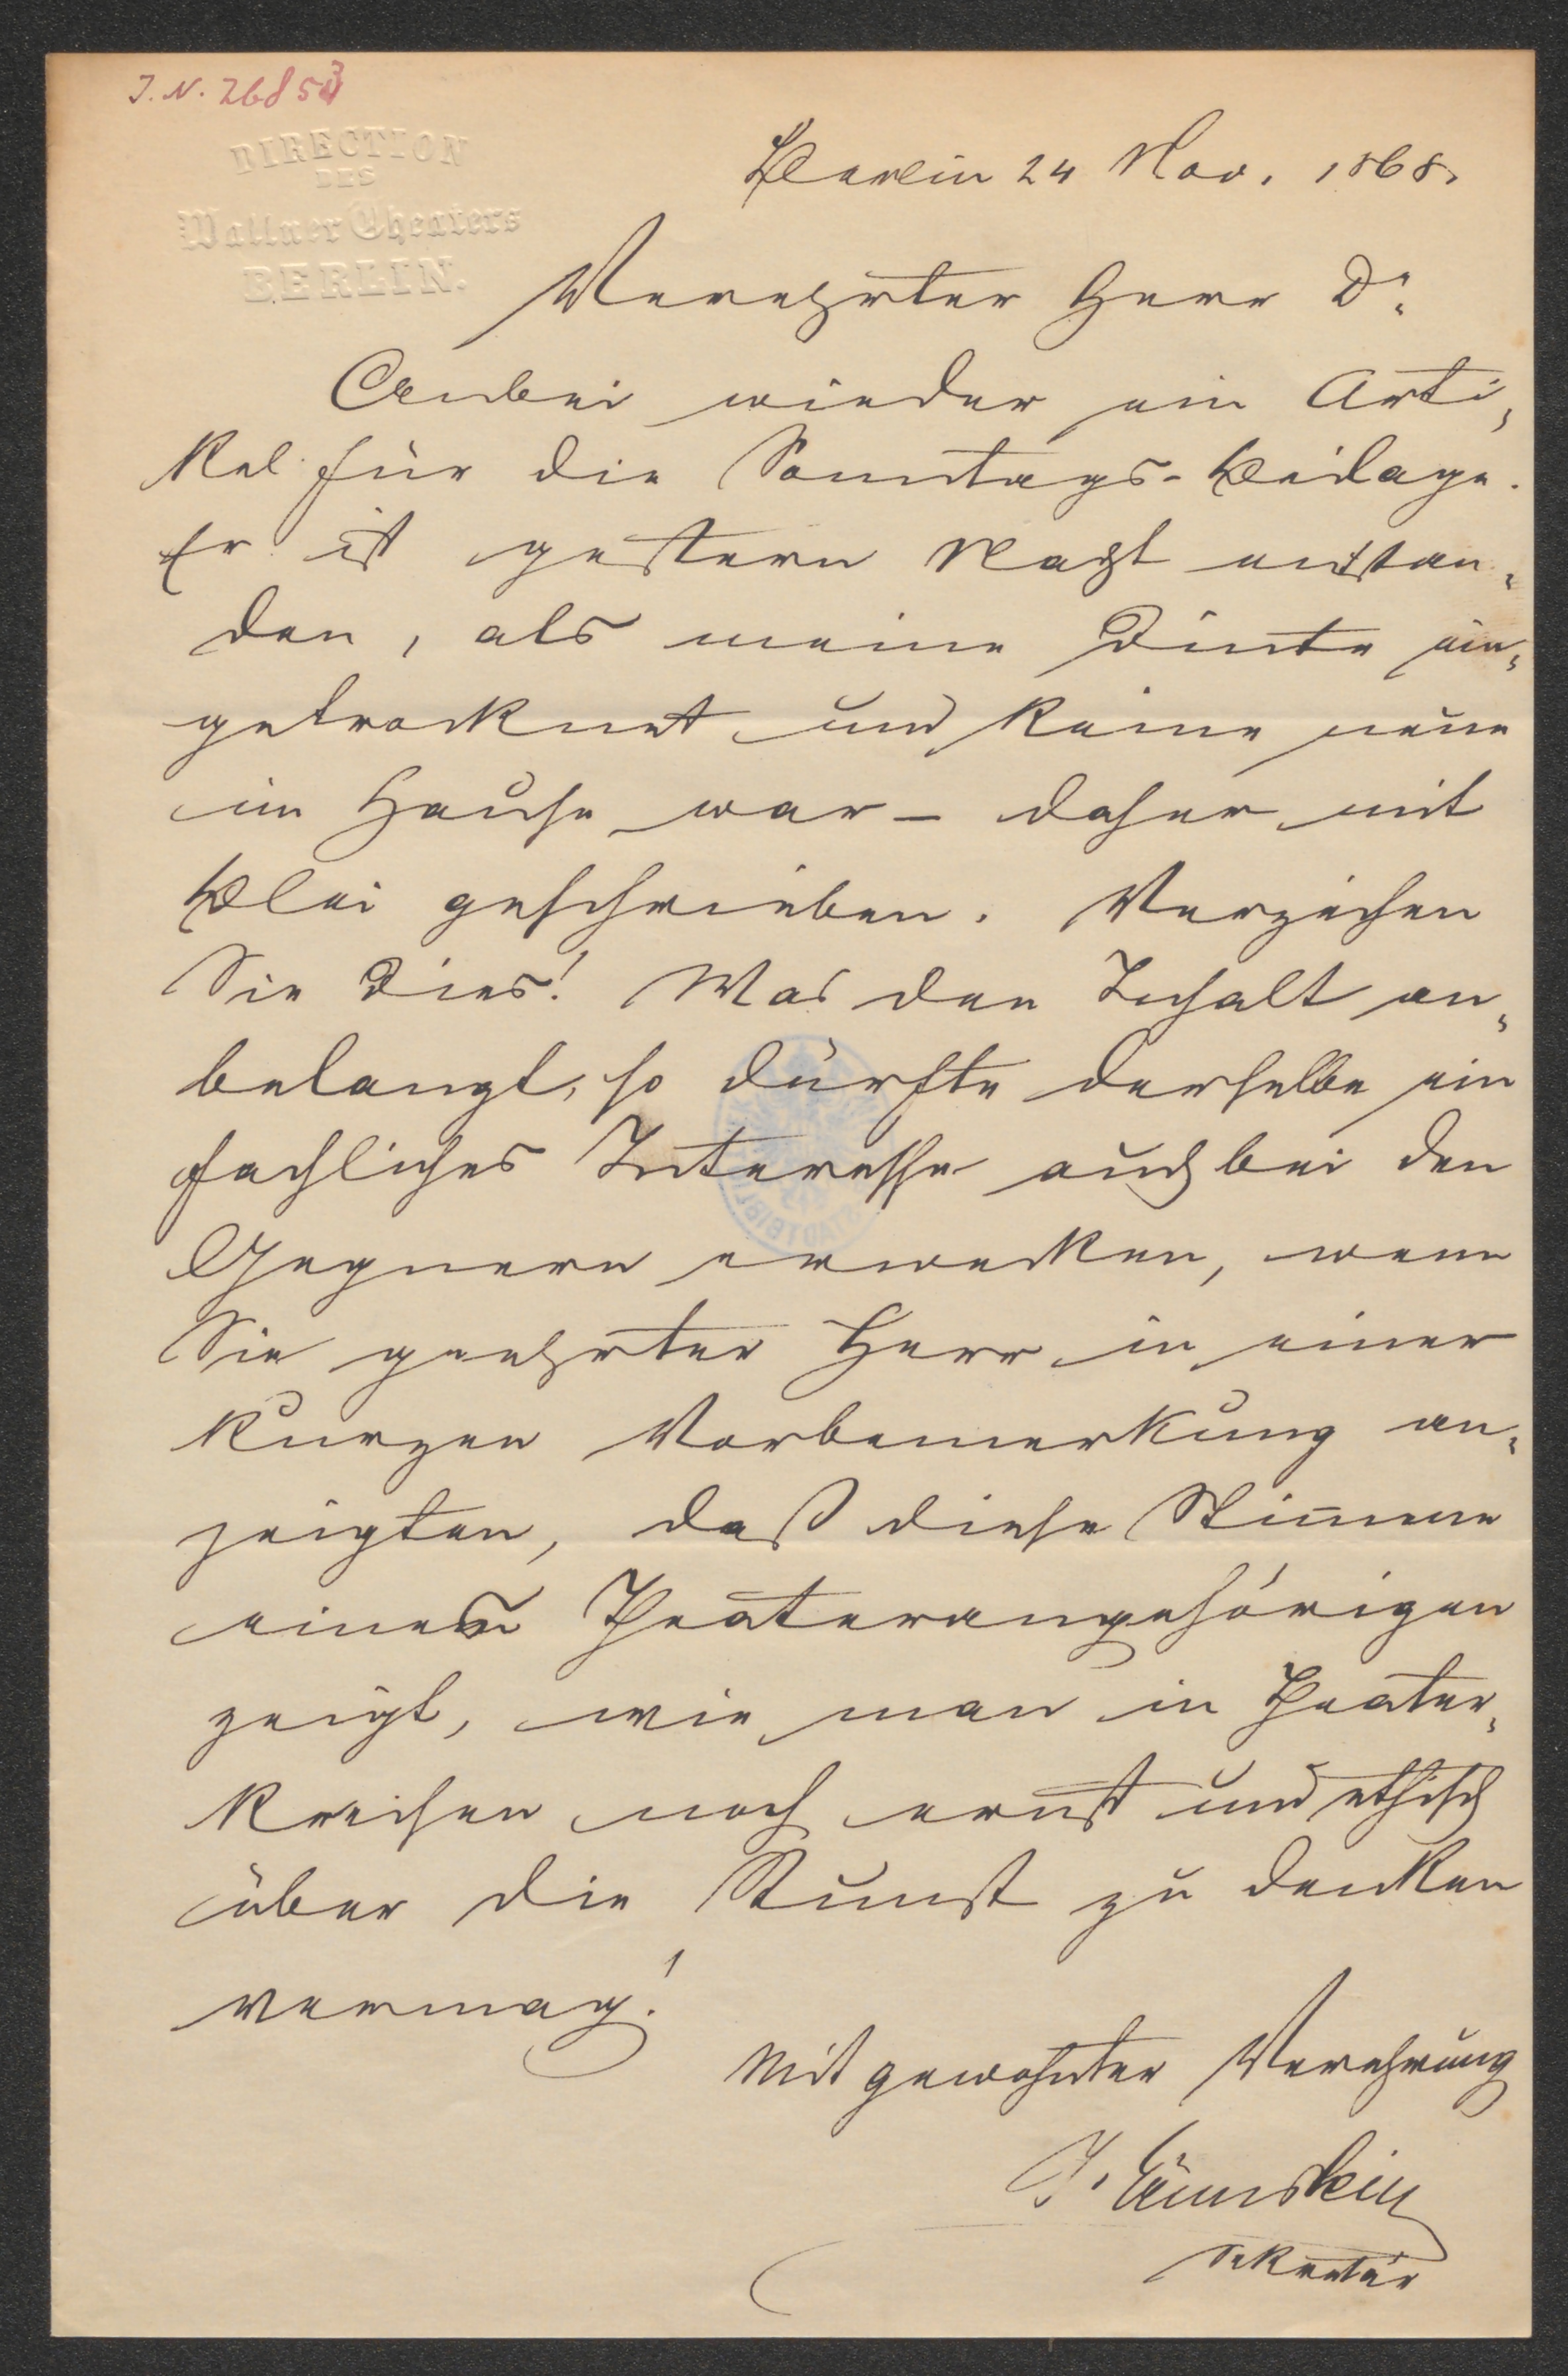 J. N. 26853
DIRECTION
DES
Wallner Theaters
BERLIN.
Berlin 24 Nov. 1868.
Verehrter Herr Dr.
Anbei wieder ein Arti-
kel für die Sonntags-Beilage.
Er ist gestern Nacht entstan-
den, als meine Dinte ein-
getrocknet und keine neue
im Hause war – daher mit
Blei geschrieben. Verzeihen
Sie dies! Was den Inhalt an-
belangt, so dürfte derselbe ein
fachliches Interesse auch bei den
Gegnern erwecken, wenn
Sie geehrter Herr in einer
kurzen Vorbemerkung an-
zeigten, daß diese Stimme
eines Theaterangehörigen
zeigt, wie man in Theater-
kreisen noch ernst und ethisch
über die Kunst zu denken
vermag!
Mit gewohnter Verehrung
Sekretär